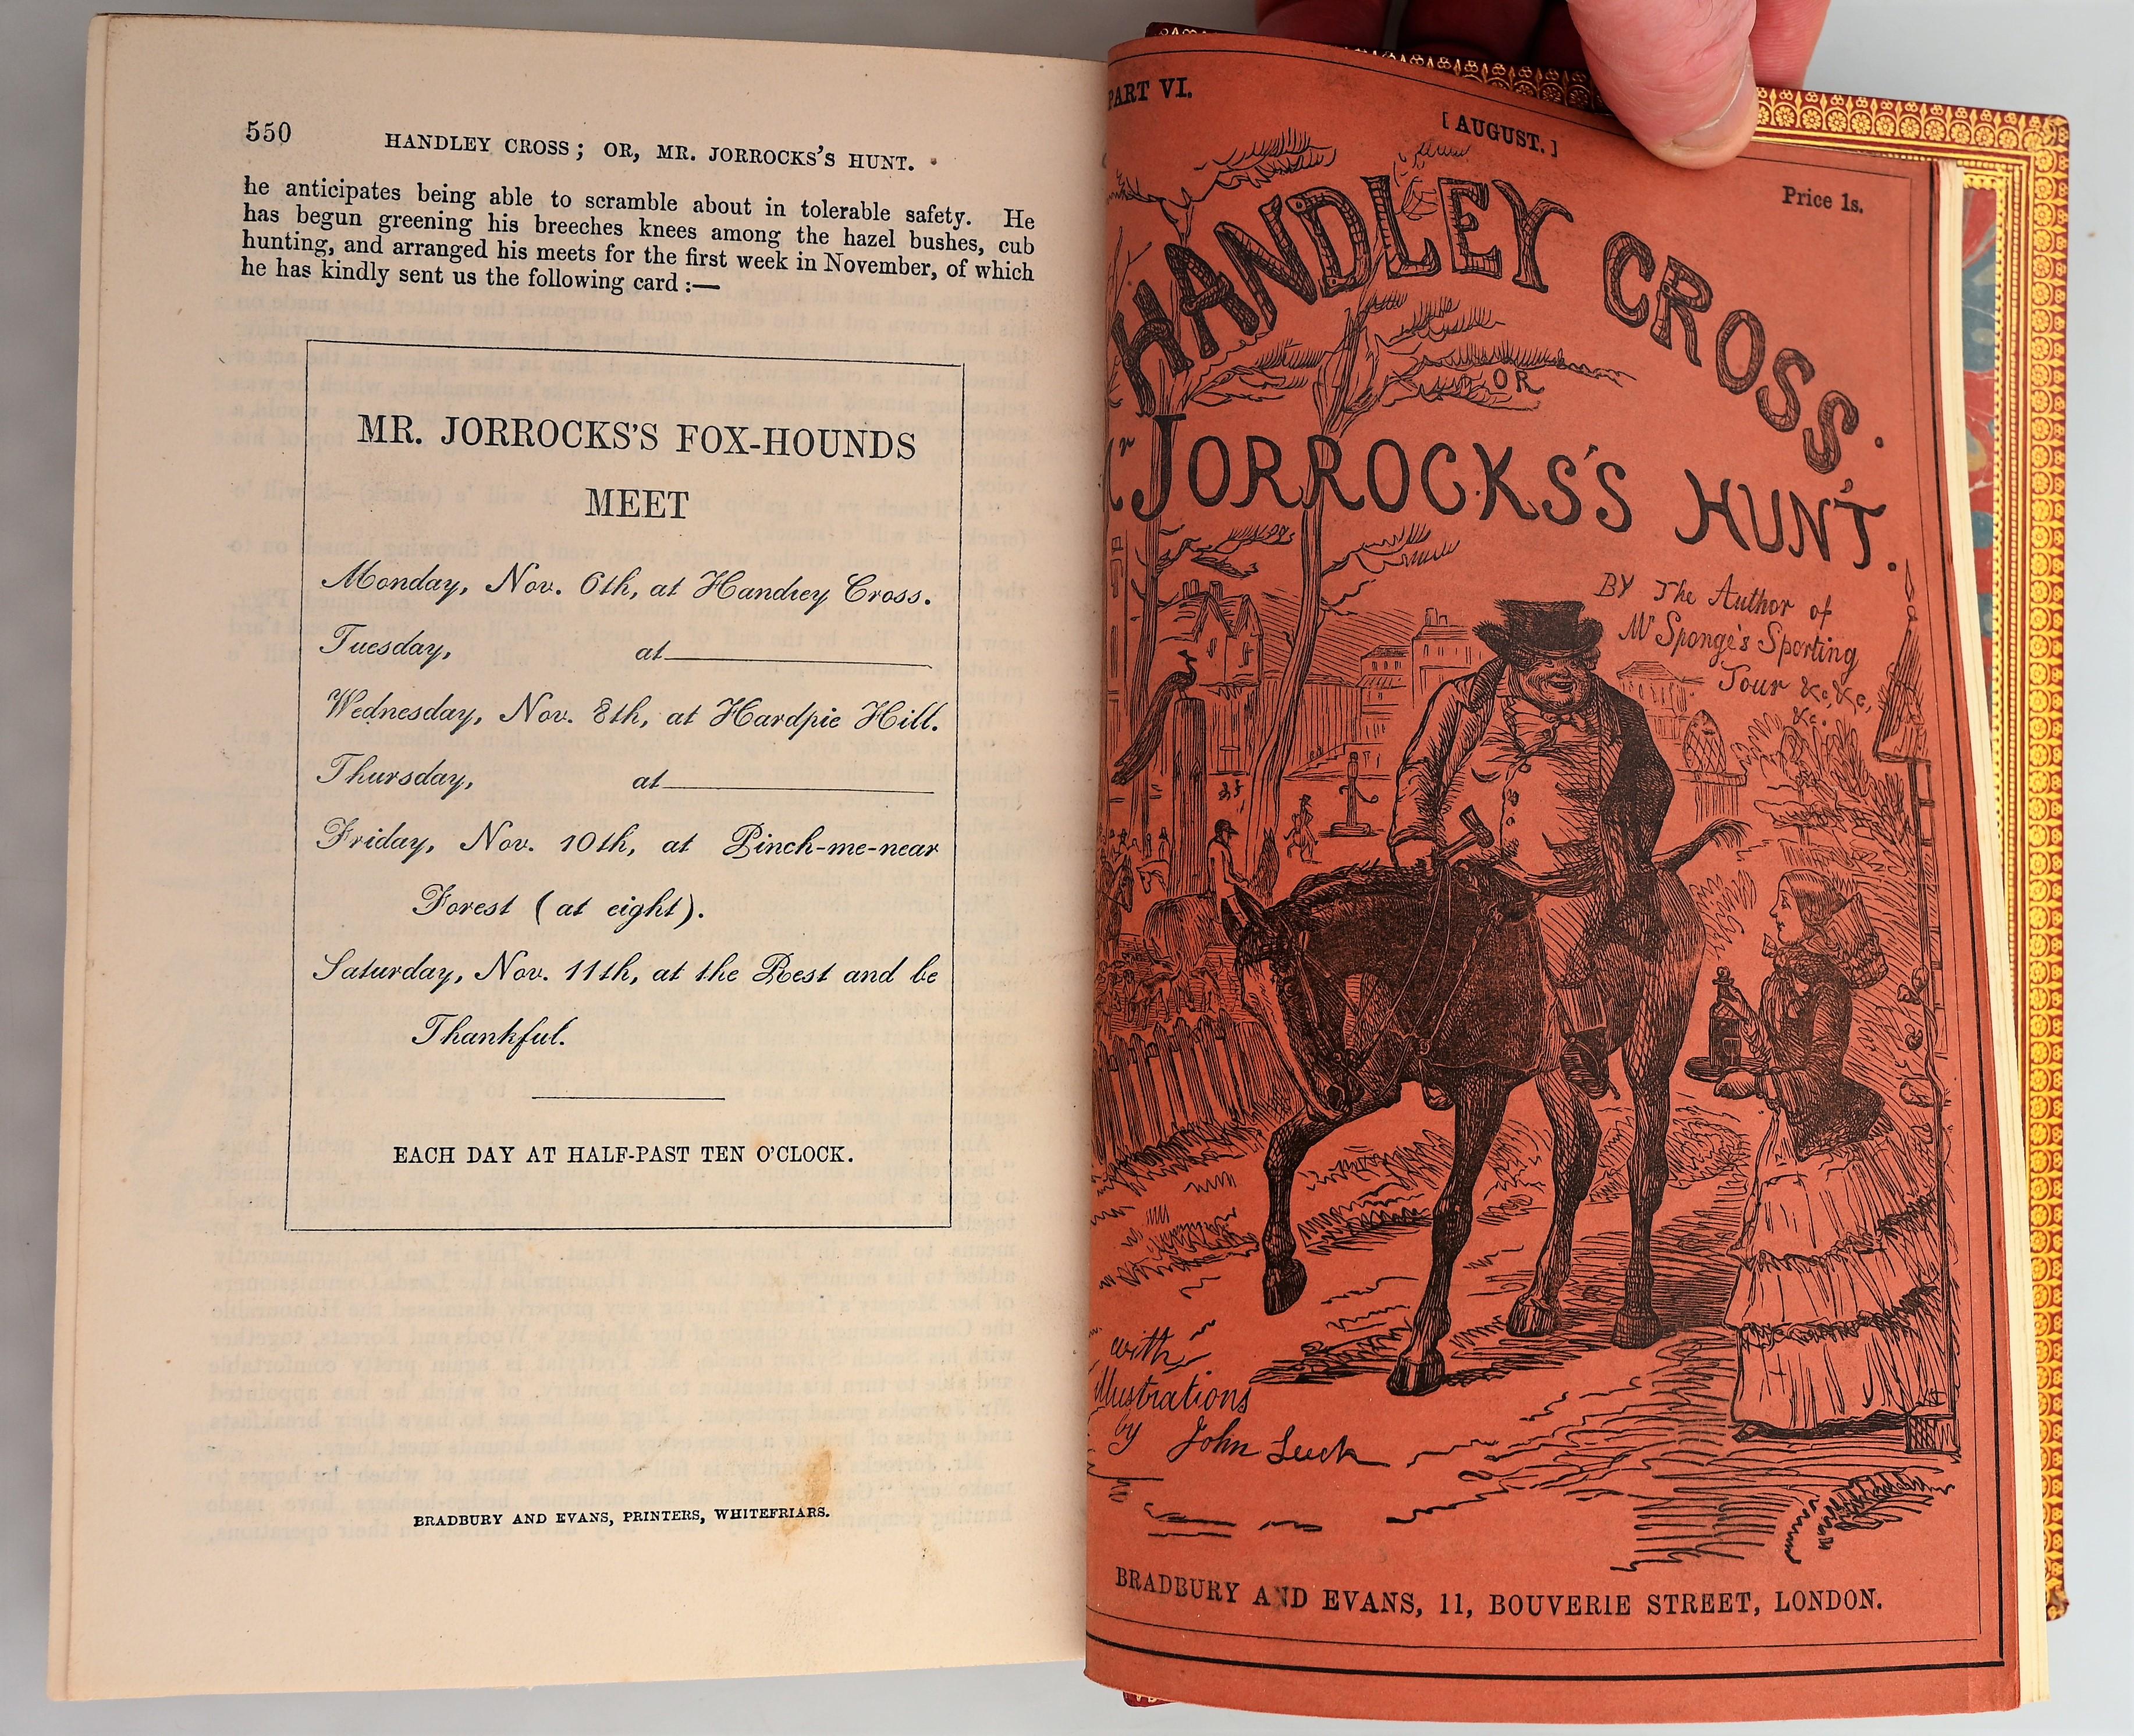 550
HANDLEY CROSS; OR, MR. JORROCKS'S HUNT.
he anticipates being able to scramble about in tolerable safety. He
has begun greening his breeches knees among the hazel bushes, cub
hunting, and arranged his meets for the first week in November, of which
he has kindly sent us the following card:—
MR. JORROCKS'S FOX-HOUNDS
MEET
Monday, Nov. 6th, at Handley Cross.
Tuesday, at
Wednesday, Nov. 8th, at Hardpie Hill.
Thursday, at
Friday, Nov. 10th, at Pinch-me-near
Forest (at eight).
Saturday, Nov. 11th, at the Rest and be
Thankful.
EACH DAY AT HALF-PAST TEN O'CLOCK.
BRADBURY AND EVANS, PRINTERS, WHITEFRIARS.
PART VI.
[AUGUST.]
Price 1s.
HANDLEY CROSS.
OR
Mr JORROCKS'S HUNT.
BY The Author of
Mr Sponge's Sporting
Tour &c, &c,
&c.
with
illustrations
by John Leech
BRADBURY AND EVANS, 11, BOUVERIE STREET, LONDON.